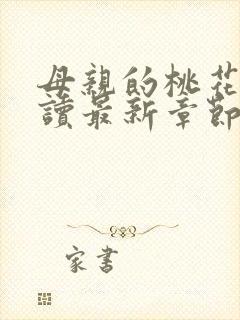 母親的桃花
讀最新章節
家書